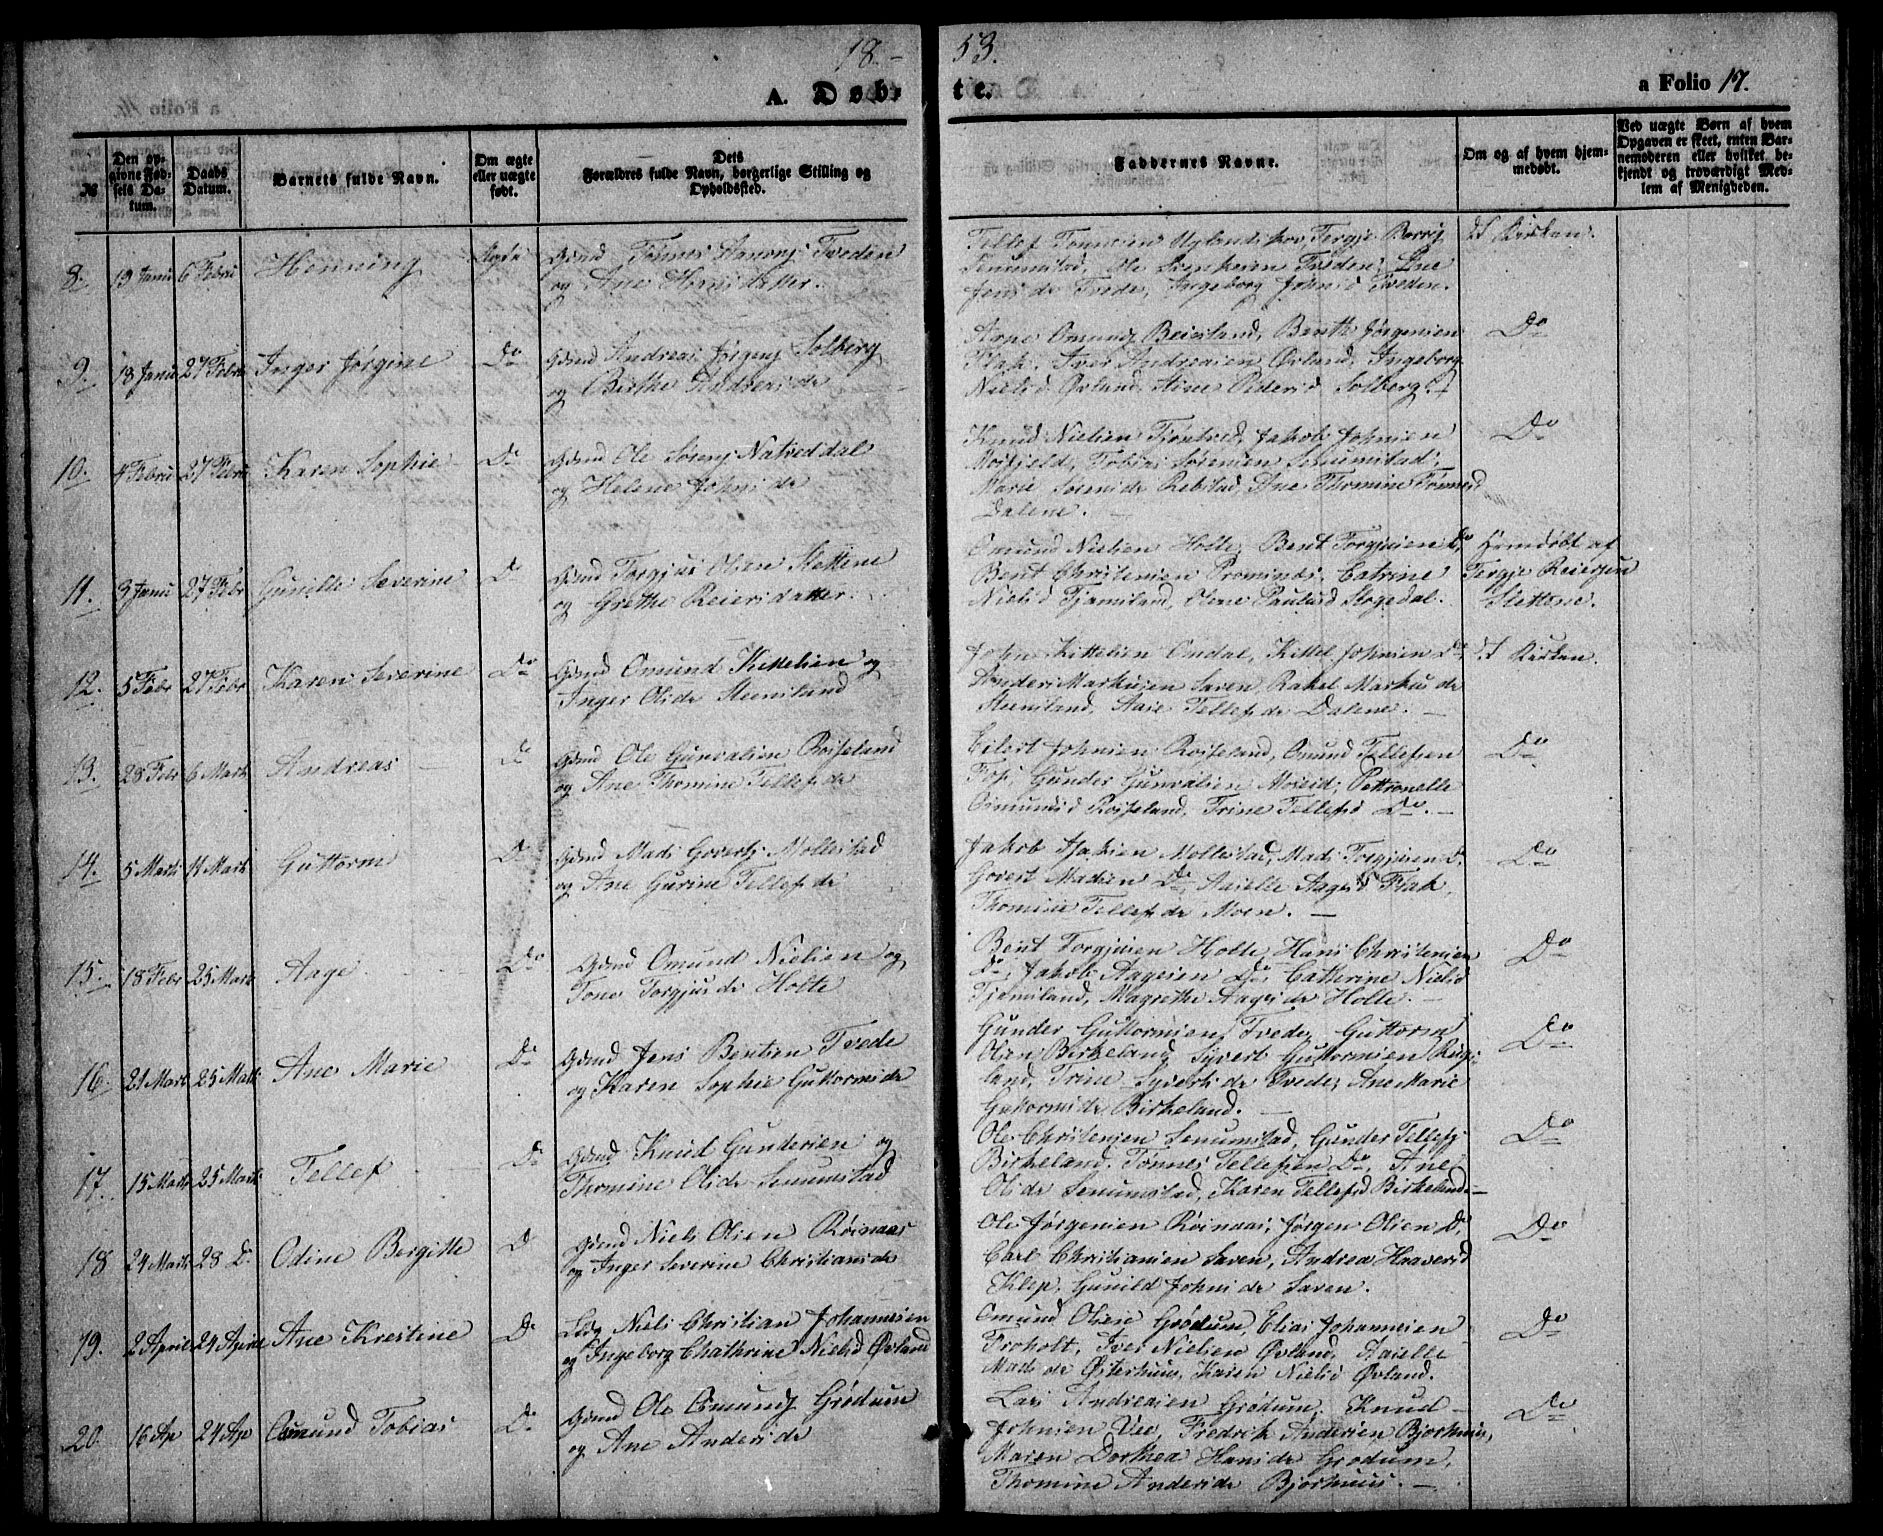 18 - 53.
A. Døbte.
a Folio 17.
№
Den opgivne Fødsels Datum.
Daabs Datum.
Barnets fulde Navn.
Om ægte eller uægte født.
Dets Forældres fulde Navn, borgerlige Stilling og Opholdssted.
Faddernes Navne.
Om og af hvem hjemmedøbt.
Ved uægte Børn af hvem Opgaven er skeet, enten Barnemoderen eller hvilket bekjendt og troværdigt Medlem af Menigheden.
8. 19 Janu 6 Febru Henning Ægte Gmd Tønnes Tveden
og Ane
Tellef Tønnesen Uglandskov, Tergje
Senumstad, Ole Tveden, Line
Jensdr Tvede, Ingeborg Johnsd Tveden.
I Kirken.
9. 18 Janu 27 Febru Inger Jørgine Do Gmd Andreas Jørgens Solberg
og Birthe Andreasdr
Arne Omunds Beisland, Benthe Jørgensen
Flak, Iver Andreasen Øvland, Ingeborg
Nielsd Øvland, Stine Solberg.
Do
10. 4 Febru 27 Febru Karen Sophie Do Gmd Ole Sørens Natveddal
og Helene Johnsdr
Knud Nielsen Jakob Johnsen
Mosfjeld, Tobias Sørensen Senumstad,
Marie Sørensdr Rebstad, Ane Thomine
Dalene.
Do
11. 3 Janu 27 Febr Gunille Severine Do Gmd Torgjus Olsen Slettene
og Grethe Reiersdatter.
Omund Nielsen Holte, Bent Torgjusen Do
Bent Christensen Catrine
Nielsd Tjamsland, Olene Paulusd Stogedal.
Hjemdøbt af
Tergje Reiersen
Slettene.
12. 5 Febr 27 Febr Karen Severine Do Gmd Omund Kittelsen og
Inger Olsdr Steensland
John Kittelsen Omdal, Kittel Johnsen Do
Anders Markusen Saven, Rakel Markusdr
Steensland, Aase Tellefsdr Dalene. -
I Kirken.
13. 28 Febr 6 Marts Andreas Do Gmd Ole Gunvalsen Roiseland
og Ane Thomine Tellefsdr
Eilert Johnsen Roiseland, Omund Tellefsen
Gunder Gunvalsen Moseid, Pettronelle
Osmundsd Roiseland, Trine Tellefsd Do. -
Do
14. 5 Marts 11 Marts Guttorm Do Gmd Mads Goverts Mollestad
og Ane Gurine Tellefsdr
Jakob Isaksen Mollestad, Mads Torgjusen Do
Govert Madsen Do, Aasille Aagesd Flak,
Thomine Tellefsdr Moen. -
Do
15. 18 Febr 25 Marts Aage Do Gmd Omund Nielsen og
Tone Torgjusdr Holte
Bent Torgjusen Holte, Hans Christensen
Do, Jakob Aagesen Do, Catherine Nielsd
Tjamsland, Magrethe Aagesdr Holte. -
Do
16. 21 Marts 25 Marts Ane Marie Do Gmd Jens Bentsen Tvede
og Karen Sophie Guttormsdr
Gunder Guttormsen Tvede, Guttorm
Olsen Birkeland, Syvert Guttormsen Rugs-
land, Trine Syvertsdr Tvede, Ane Marie
Guttormsdr Birkeland. -
Do
17. 15 Marts 25 Marts Tellef Do Gmd Knud Gundersen og
Thomine Olsdr Senumstad
Ole Christensen Senumstad, Gunder Tellefs
Birkeland, Tønnes Tellefsen Do, Ane
Olsdr Senumstad, Karen Tellefsd Birkeland. -
Do
18 24 Marts 28 Do Odine Bergitte Do Gmd Niels Olsen Roinaas
og Inger Severine Christiansdr
Ole Jørgensen Roinaas, Jørgen Olsen Do
Carl Christiansen Saven, Andrea Haaversd
Klep, Gunild Johnsdr Saven.
Do
19. 2 April 24 April Ane Kristine Do Niels Christian Johannesen
og Ingeborg Chathrine Nielsd Øvland
Omund Olsen Grødum, Elias Johannesen
Froholt, Iver Nielsen Øvland, Aasille
Madsdr Østerhuus, Karen Nielsd Øvland.
Do
20. 16 Ap 24 Ap Osmund Tobias Do Gmd Ole Osmunds Grødum
og Ane Andersdr
Lars Andreasen Grødum, Knud
Johnsen Vee, Fredrik Andersen Bjorhuus,
Maren Dorthea Hansdr Grødum,
Thomine Andersdr Bjorhuus. -
Do